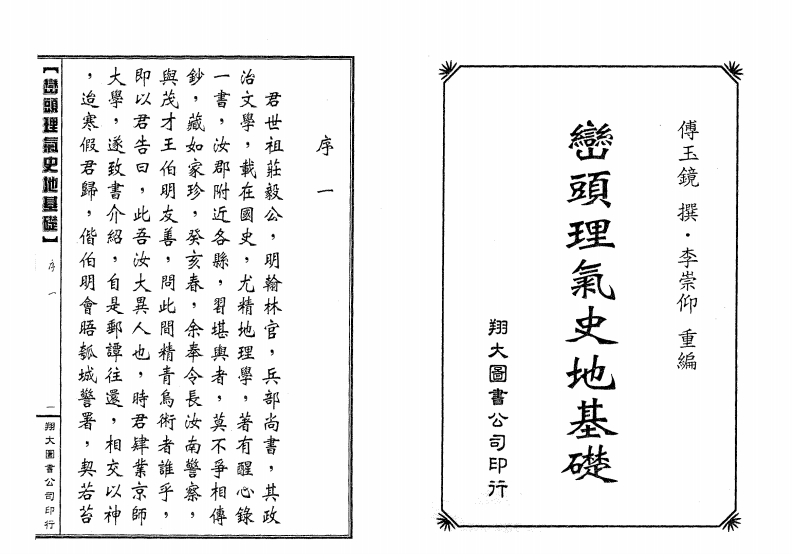 傅玉鏡 撰・李崇仰 重編
巒頭理氣史地基礎
翔大圖書公司印行
序一
君世祖莊毅公，明翰林官，兵部尚書，其政
治文學，載在國史，尤精地理學，著有醒心錄
一書，汝郡附近各縣，習堪輿者，莫不爭相傳
鈔，藏如家珍，癸亥春，余奉令長汝南警察，
與茂才王伯明友善，問此間精青烏術者誰乎，
即以君告曰，此吾汝大異人也，時君肄業京師
大學，遂致書介紹，自是郵譚往還，相交以神
，迨寒假君歸，偕伯明會晤瓠城警署，契若苔
【巒頭理氣史地基礎】
序一
一
翔大圖書公司印行